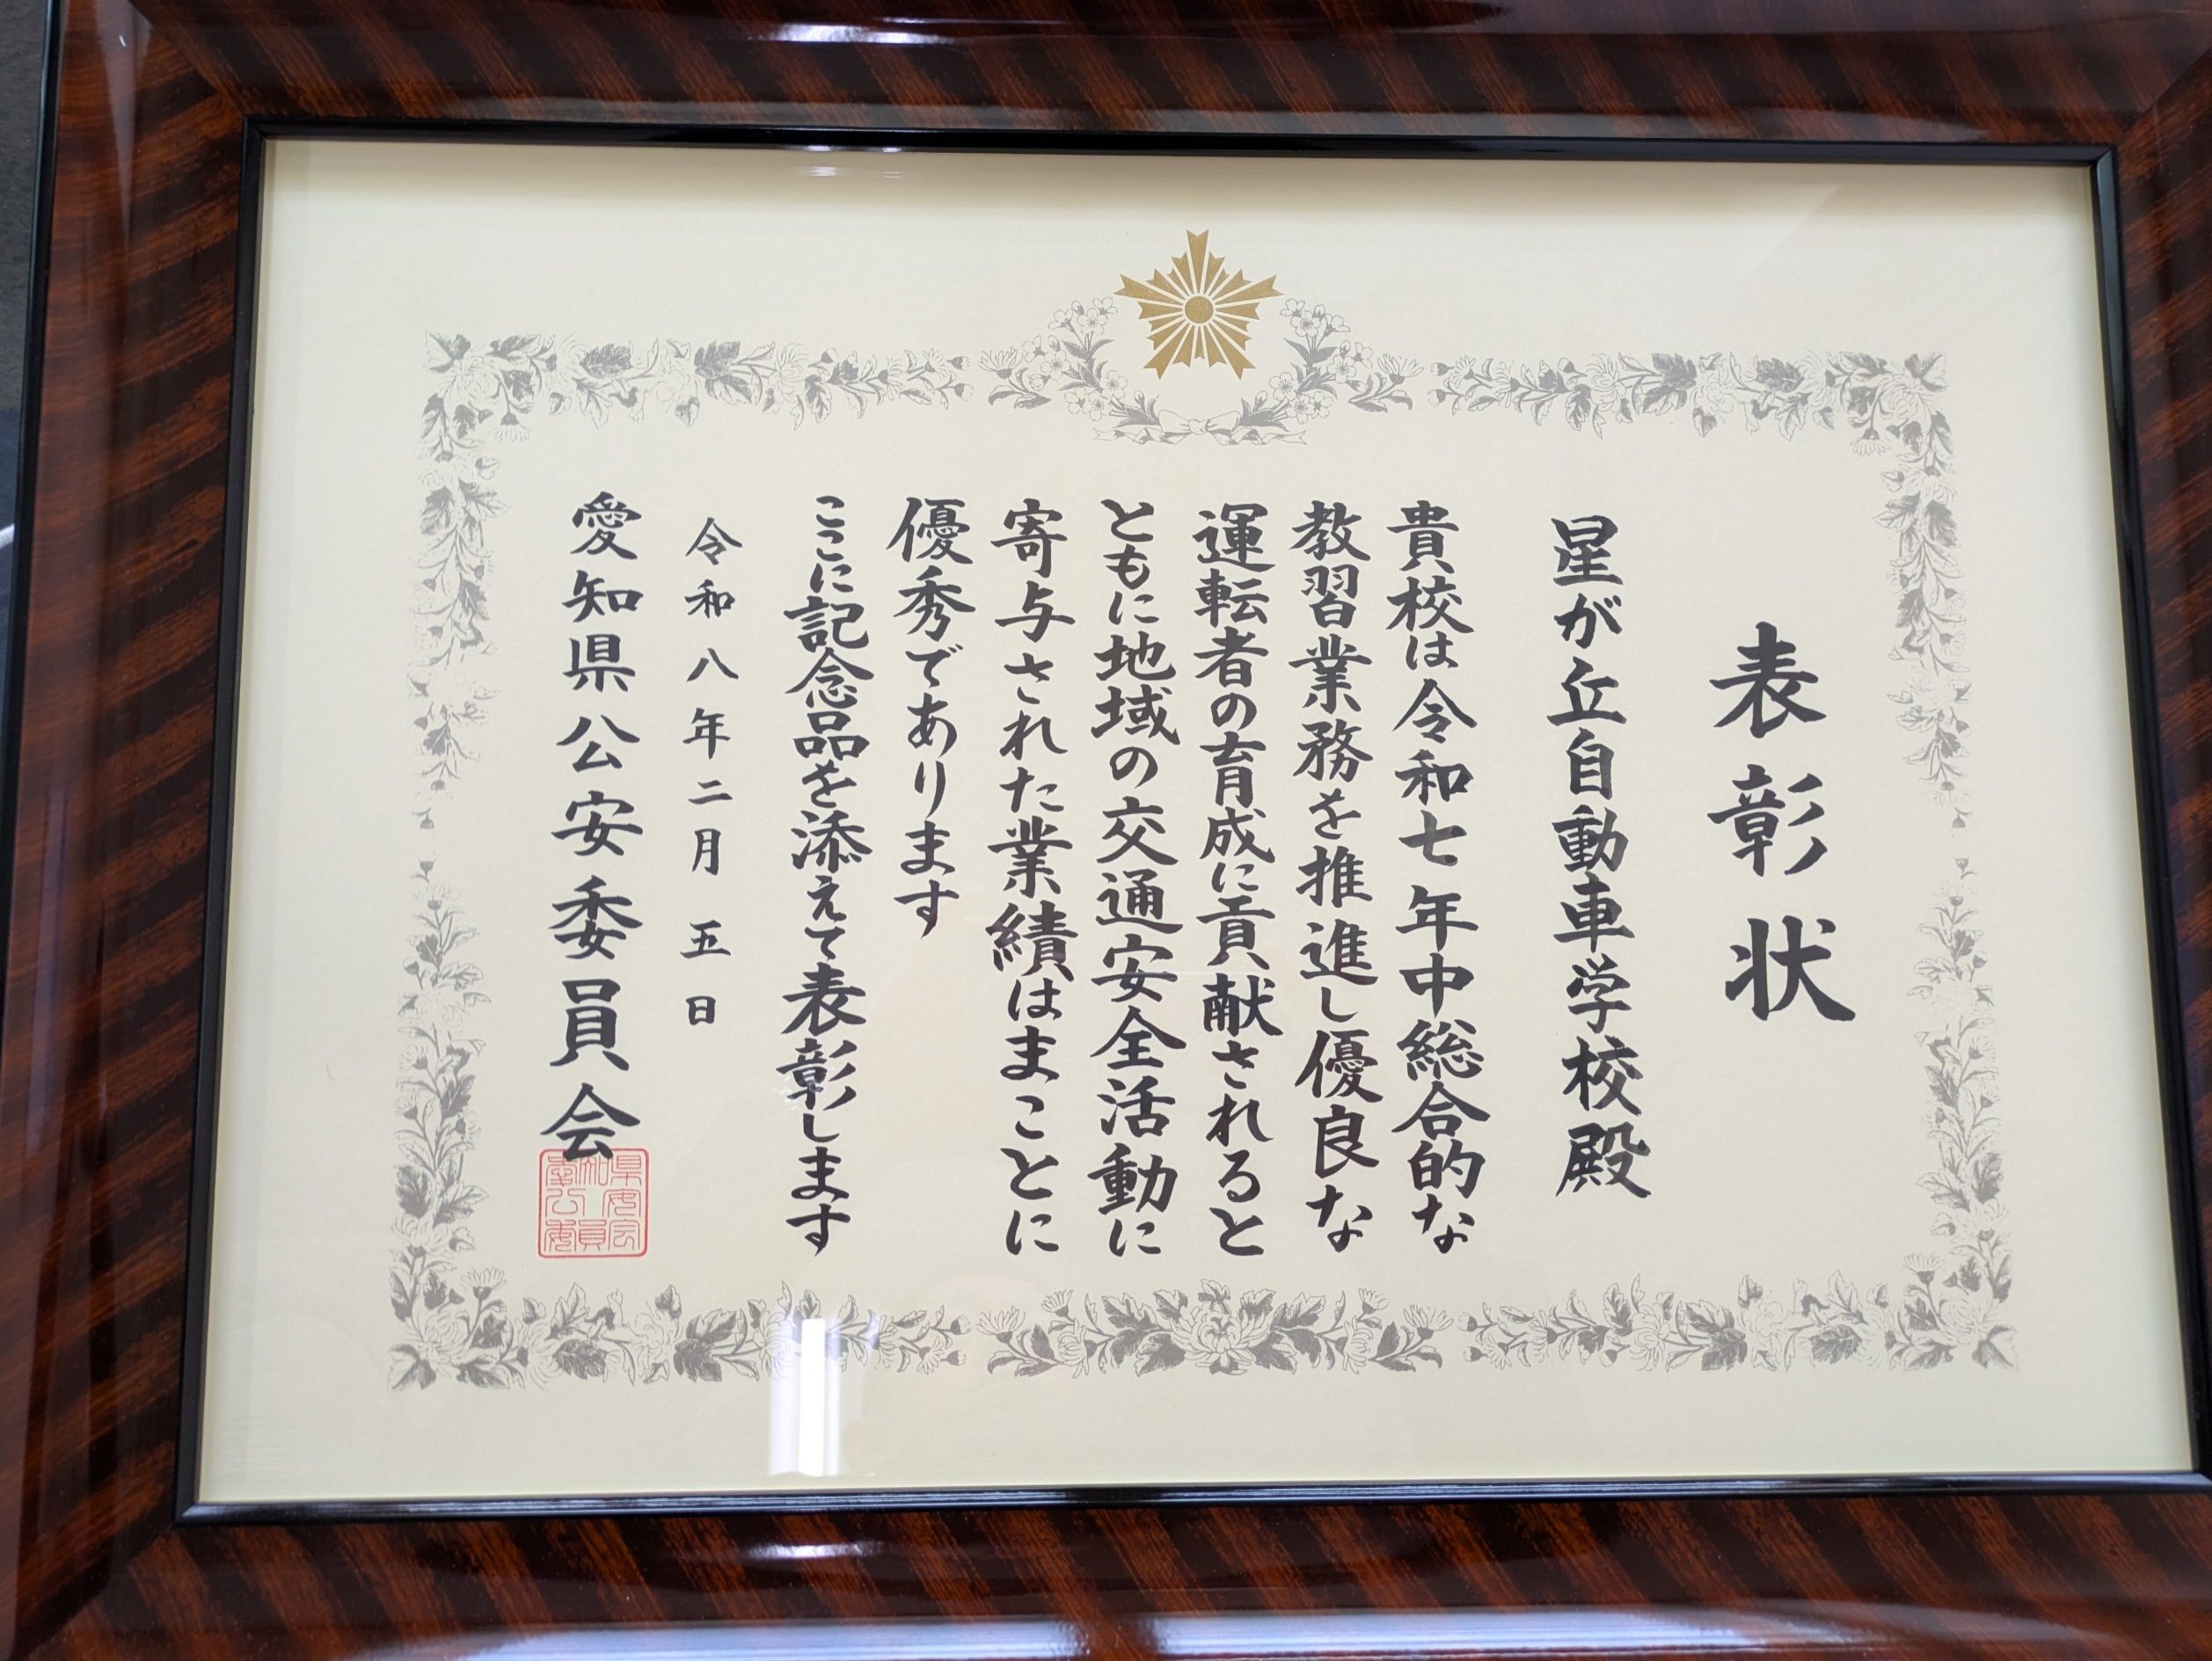 表彰状
星が丘自動車学校殿
貴校は令和七年中総合的な
教習業務を推進し優良な
運転者の育成に貢献されると
ともに地域の交通安全活動に
寄与された業績はまことに
優秀であります
ここに記念品を添えて表彰します
令和八年二月五日
愛知県公安委員会